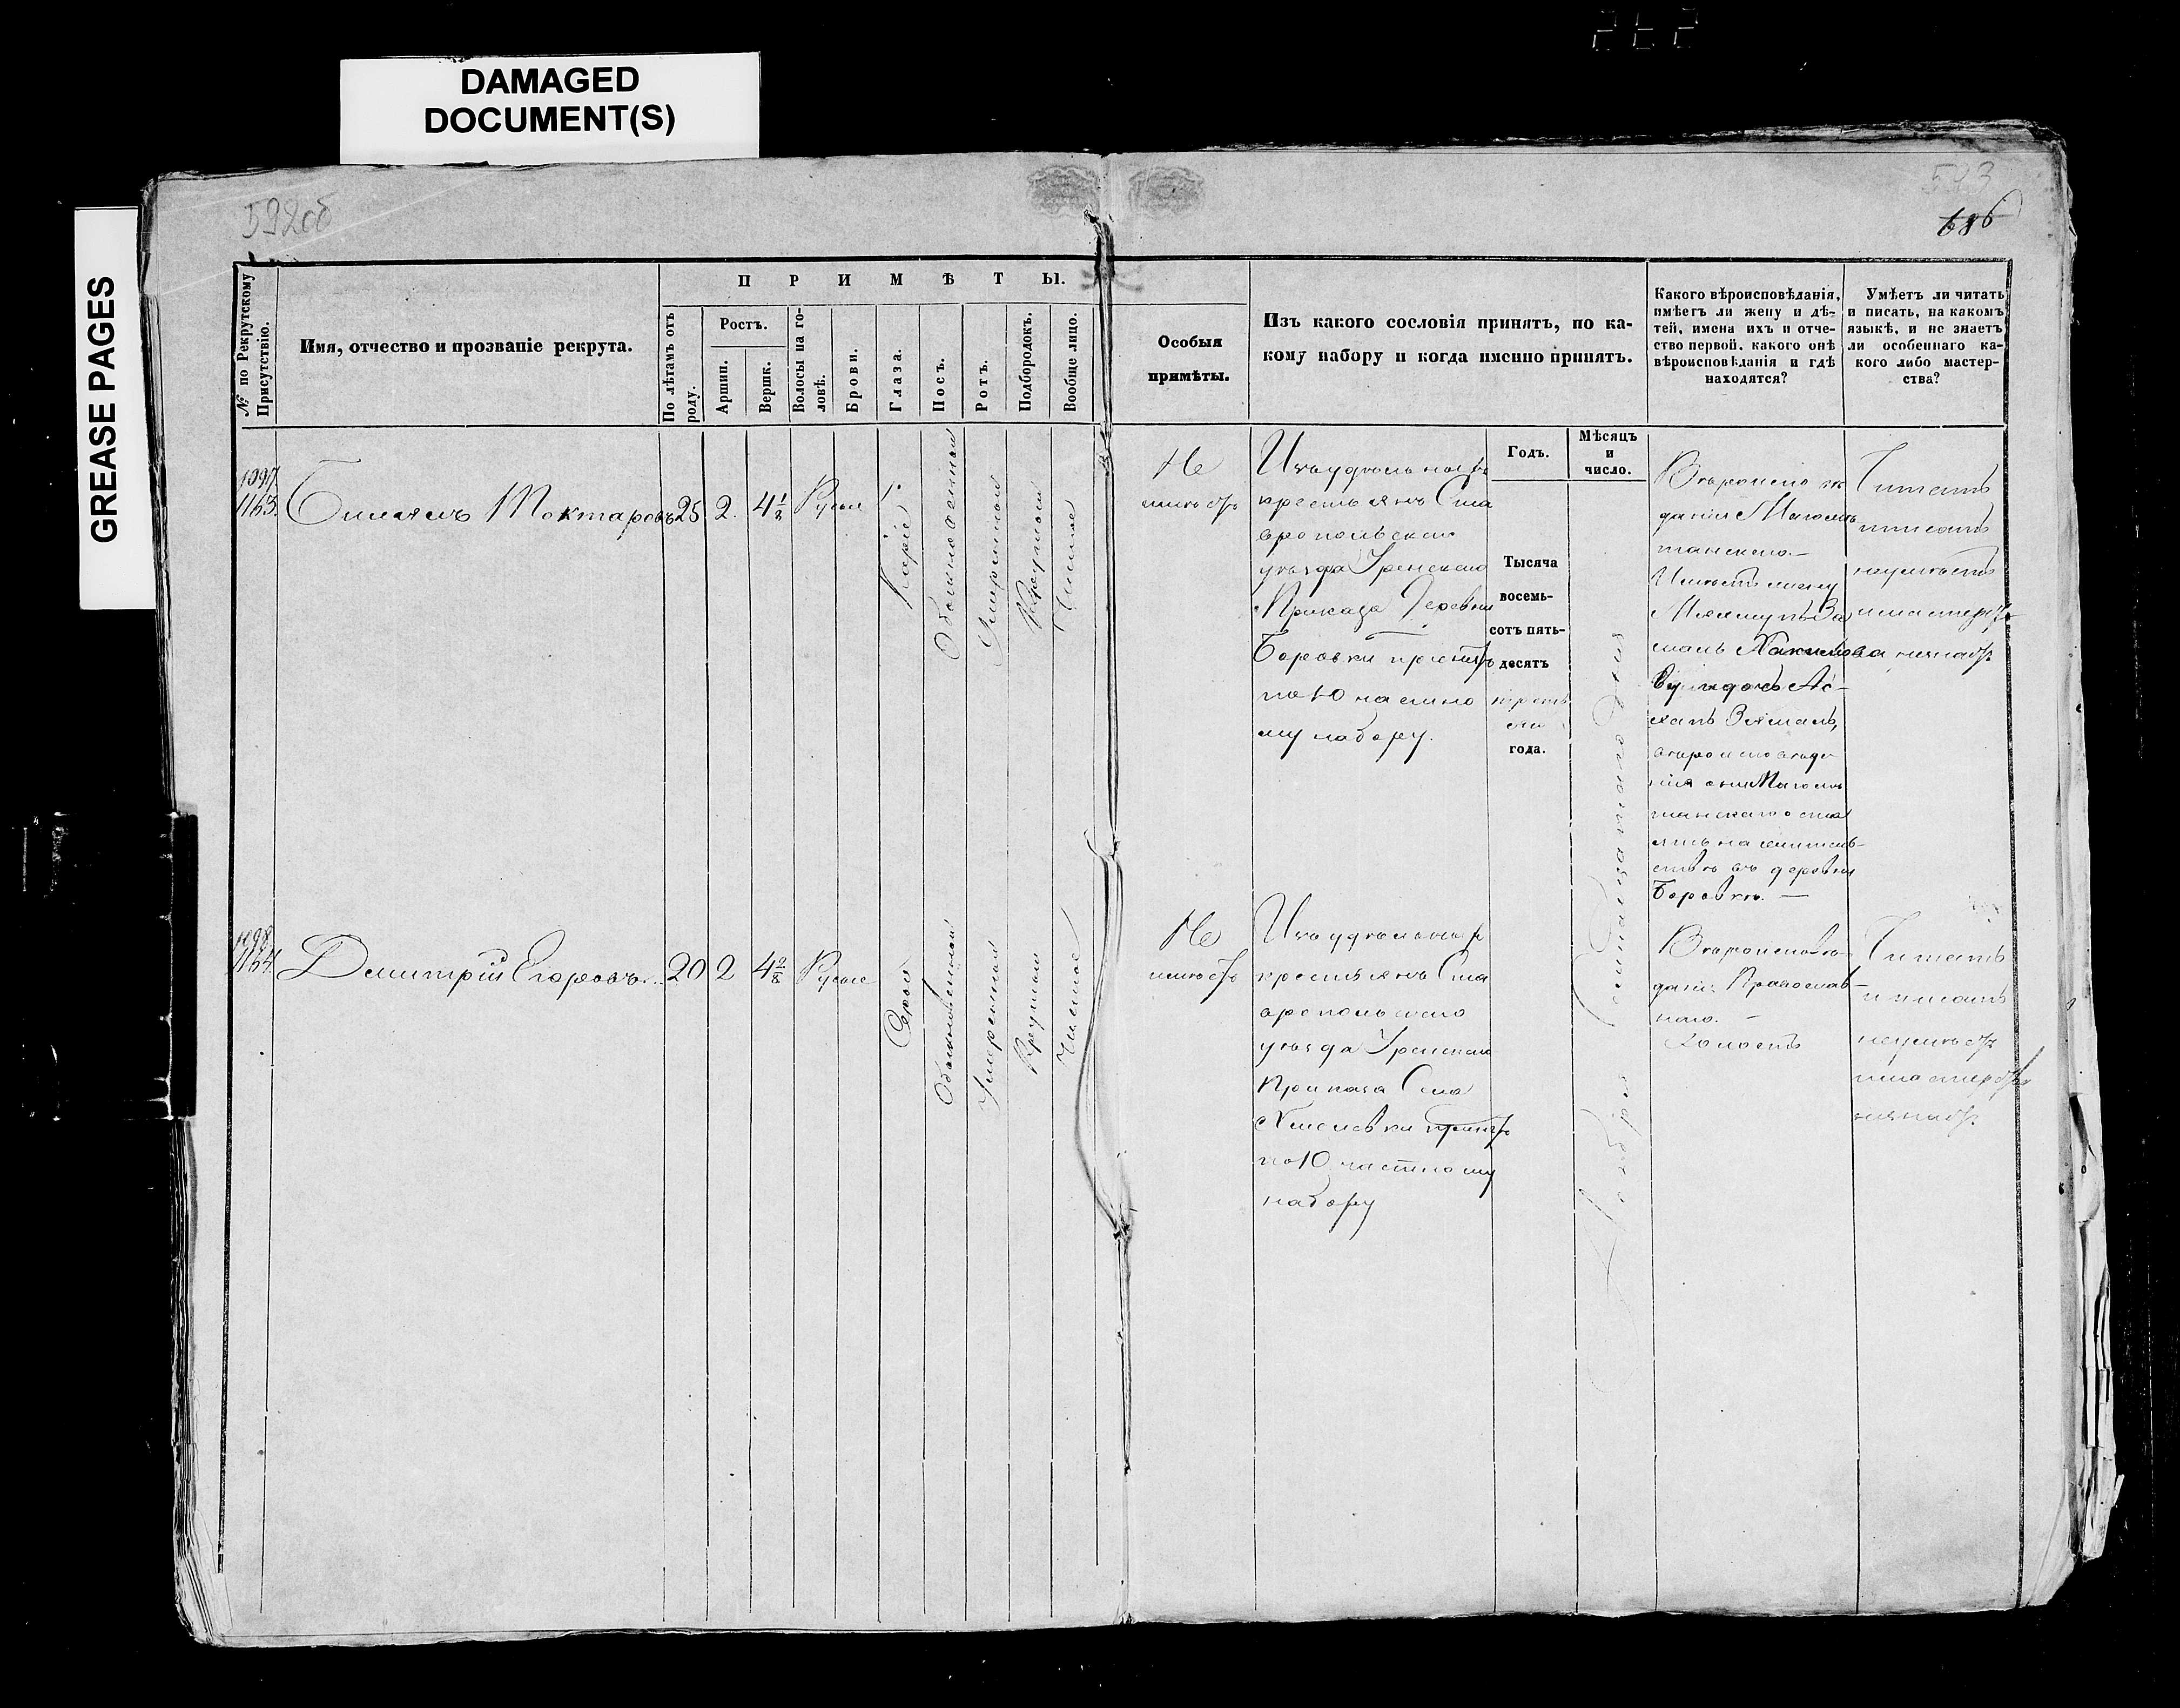 DAMAGED
DOCUMENT(S)
GREASE PAGES
592об
543
686
№ по Рекрутскому
Присутствію.
Имя, отчество и прозваніе рекрута.
П Р И М Ѣ Т Ы.
По лѣтамъ отъ
роду.
Ростъ.
Аршин.
Вершк.
Волосы на го-
ловѣ.
Брови.
Глаза.
Носъ.
Ротъ.
Подбородокъ.
Вообще лицо.
Особыя
примѣты.
Изъ какого сословія принятъ, по ка-
кому набору и когда именно принятъ.
Какого вѣроисповѣданія,
имѣетъ ли жену и дѣ-
тей, имена ихъ и отче-
ство первой, какого онѣ
вѣроисповѣданія и гдѣ
находятся?
Умѣетъ ли читать
и писать, на какомъ
языкѣ, и не знаетъ
ли особеннаго ка-
кого либо мастер-
ства?
Годъ.
Мѣсяцъ
и
число.
1097
1163.
Билялъ Моктаровъ
25
2.
4 1/2
Русые
Каріе
Обыкновенный
Умеренный
Круглый
Чистое
Не
имѣетъ
Изъ удѣльныхъ
крестьянъ Ста
вропольскаго
уѣзда Уренскаго
Приказа Деревни
Боровки принятъ
по 10 частно
му набору.
Тысяча
восемь-
сотъ пять-
десятъ
третьяго
года.
Декабря
дня
Вѣроисповѣ
данія Магоме
танскаго.
Имѣетъ жену
малъ Хакимова
вѣроисповѣда
нія они Магоме
танскаго
ятъ на житель-
ствѣ въ деревни
Боровкѣ.
Читать
писать
неумѣетъ
и мастерств
незнаетъ
1098
1164.
Дмитрій Егоровъ
20
2
4 2/8
Русые
Серые
Обыкновенный
Умеренный
Круглый
Чистое
Не
имѣетъ
Изъ удѣльныхъ
крестьянъ Ста
вропольскаго
уѣзда Уренскаго
Приказа Села
Хмелевки принятъ
по 10 частному
набору
Вѣроисповѣ
данія Православ-
наго.
Холостъ
Читать
и писать
неумѣетъ
и мастерств
незнаетъ